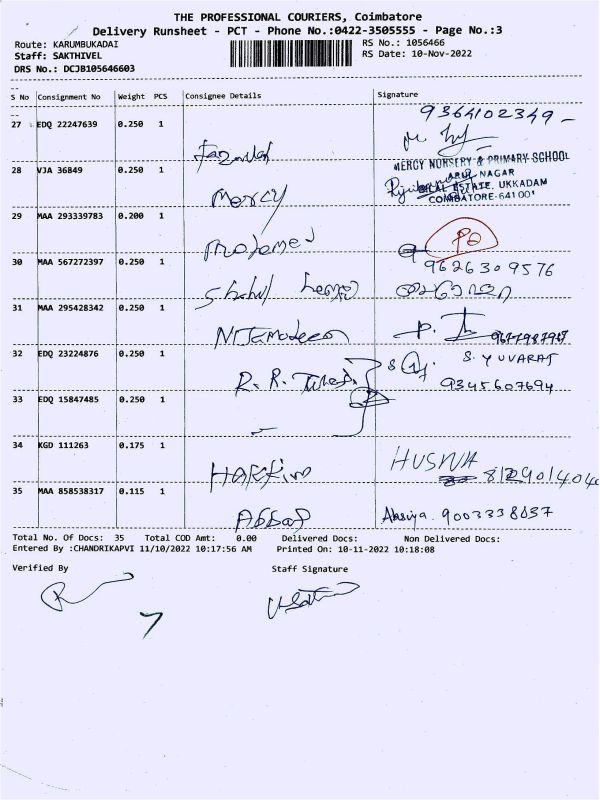 THE PROFESSIONAL COURIERS, Coimbatore
Delivery Runsheet - PCT - Phone No.:0422-3505555 - Page No.:3
Route: KARUMBUKADAI
RS No.: 1056466
Staff: SAKTHIVEL
RS Date: 10-Nov-2022
DRS No.: DCJB105646603
S No Consignment No Weight PCS Consignee Details Signature
27 EDQ 22247639 0.250 1 9364102349
28 VJA 36849 0.250 1 Mercy
MERCY NURSERY & PRIMARY SCHOOL
ARUL NAGAR
BILAL ESTATE, UKKADAM
COIMBATORE-641001
29 MAA 293339783 0.200 1
30 MAA 567272397 0.250 1 9626309576
31 MAA 295428342 0.250 1
32 EDQ 23224876 0.250 1 S. YUVARAJ
9345607694
33 EDQ 15847485 0.250 1
34 KGD 111263 0.175 1 HAKKIM HUSNA
35 MAA 858538317 0.115 1 Abbas
Total No. Of Docs: 35 Total COD Amt: 0.00 Delivered Docs: Non Delivered Docs:
Entered By :CHANDRIKAPVI 11/10/2022 10:17:56 AM Printed On: 10-11-2022 10:18:08
Verified By Staff Signature